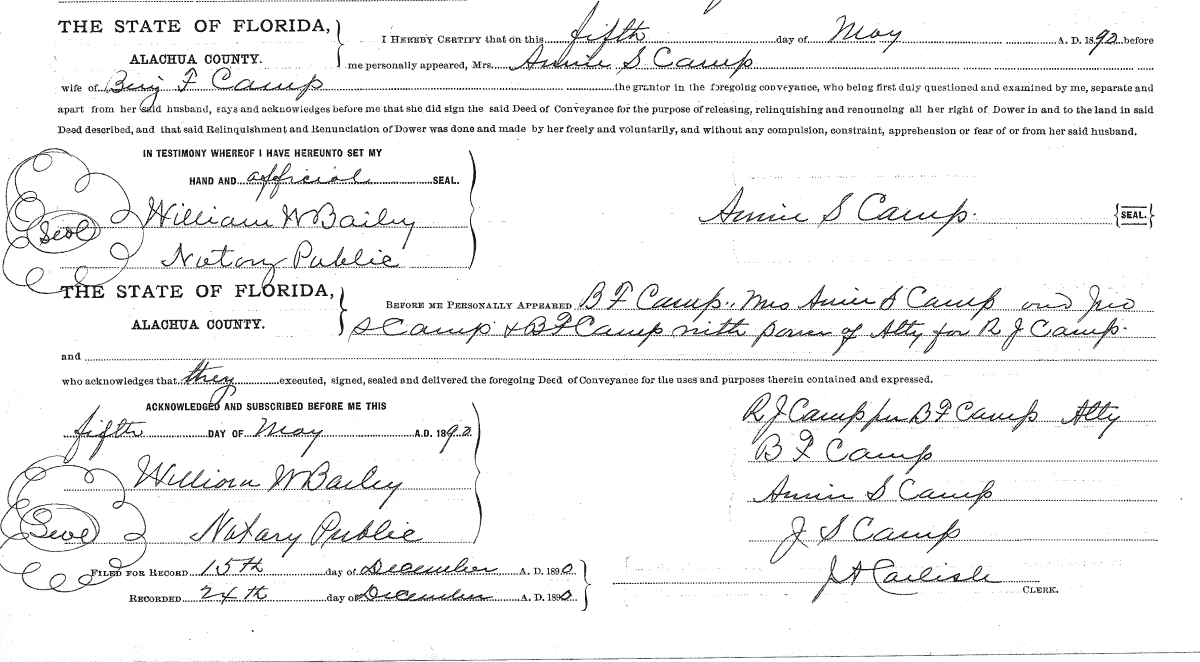 THE STATE OF FLORIDA,
ALACHUA COUNTY.
I HEREBY CERTIFY that on this fifth day of May A. D. 1892 before
me personally appeared, Mrs. Annie S Camp
wife of Benj F Camp the grantor in the foregoing conveyance, who being first duly questioned and examined by me, separate and
apart from her said husband, says and acknowledges before me that she did sign the said Deed of Conveyance for the purpose of releasing, relinquishing and renouncing all her right of Dower in and to the land in said
Deed described, and that said Relinquishment and Renunciation of Dower was done and made by her freely and voluntarily, and without any compulsion, constraint, apprehension or fear of or from her said husband.
IN TESTIMONY WHEREOF I HAVE HEREUNTO SET MY
HAND AND official SEAL.
William W Bailey
Seal
Notary Public
Annie S Camp. {SEAL.}
THE STATE OF FLORIDA,
ALACHUA COUNTY.
BEFORE ME PERSONALLY APPEARED B F Camp., Mrs Annie S Camp and Jno
S Camp & B F Camp with power of Atty for R J Camp.
and
who acknowledges that they executed, signed, sealed and delivered the foregoing Deed of Conveyance for the uses and purposes therein contained and expressed.
ACKNOWLEDGED AND SUBSCRIBED BEFORE ME THIS
fifth DAY OF May A.D. 1892
William W Bailey
Seal
Notary Public
R J Camp per B F Camp Atty
B F Camp
Annie S Camp
J S Camp
FILED FOR RECORD 15th day of December A. D. 1890
RECORDED 24th day of December A. D. 1890
J A Carlisle
CLERK.